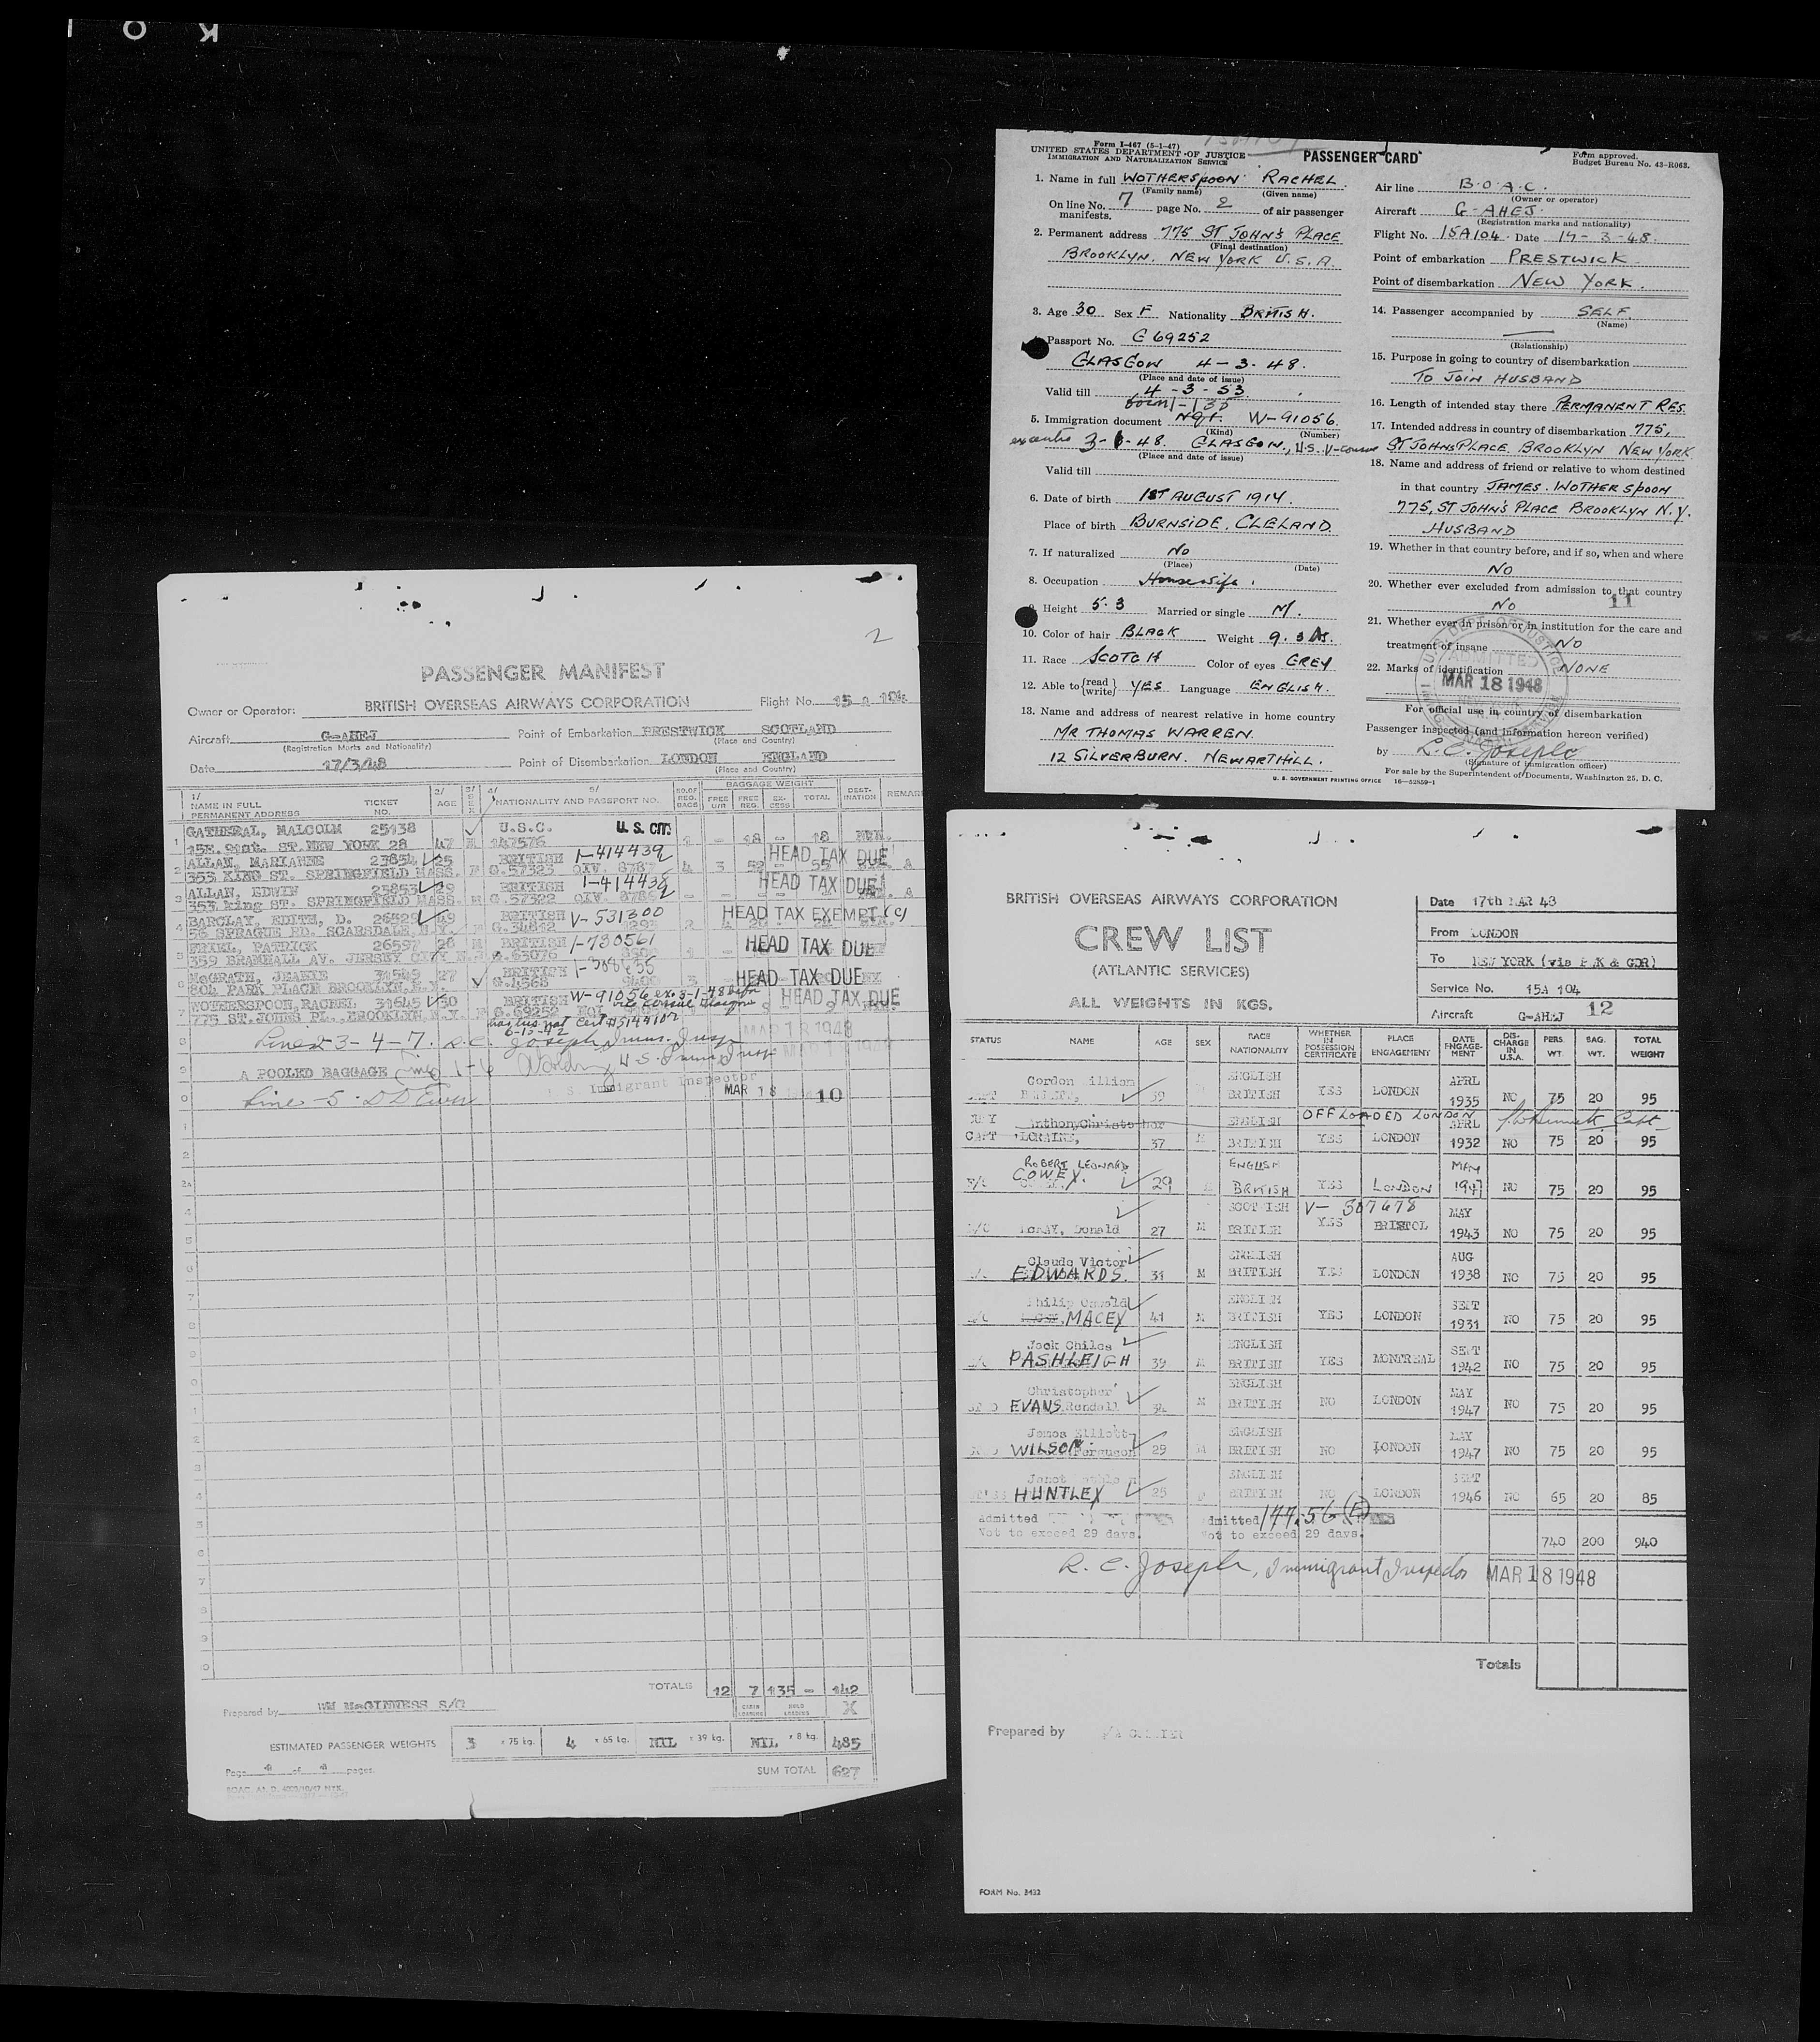 PASSENGER MANIFEST
2
Owner or Operator: BRITISH OVERSEAS AIRWAYS CORPORATION Flight No. 15 a 104
Aircraft G-AHEJ Point of Embarkation PRESTWICK SCOTLAND
(Registration Marks and Nationality) (Place and Country)
Date 17/3/48 Point of Disembarkation LONDON ENGLAND
(Place and Country)
BAGGAGE WEIGHT
1/ NAME IN FULL PERMANENT ADDRESS TICKET NO. 2/ AGE 3/ SEX 4/ 5/ NATIONALITY AND PASSPORT NO. NO.OF REG. BAGS FREE U/R FREE REG. EX-CESS TOTAL DEST-INATION REMAR
1 GATHERAL, MALCOLM 25138 U.S.C. U.S. CIT.
15E. 91st. ST. NEW YORK 28 47 M 147576 1 - 18 - 18
2 ALLAN, MARIANNE 23854 25 BRITISH 1-414439 HEAD TAX DUE
353 KING ST. SPRINGFIELD MASS. F G.57323 4 3 52 - 55 A
3 ALLAN, EDWIN 23853 29 BRITISH 1-414438 HEAD TAX DUE
353 king ST. SPRINGFIELD MASS. M G.57322 A
4 BARCLAY, EDITH, D. 26529 49 BRITISH V-531300 HEAD TAX EXEMPT (c)
56 SPRAGUE RD. SCARSDALE, N.Y. F G.34842 2
5 FRIEL, PATRICK 26597 28 M BRITISH 1-730561 HEAD TAX DUE
359 BRAMHALL AV. JERSEY CITY N.J. G.63076
6 McGRATH, JEANIE 31545 27 BRITISH HEAD TAX DUE
804 PARK PLACE BROOKLYN, N.Y. G.4568 3
7 WOTHERSPOON, RACHEL 31645 30 BRITISH W-91056 ex. 3-1-48 HEAD TAX DUE
775 ST. JOHNS PL., BROOKLYN, N.Y. F G.69252
6-15-42
Lines 2 3 - 4 - 7. R.C. Joseph Imm. Insp MAR 18 1948
A POOLED BAGGAGE U.S. Imm. Insp
Line - 5 - D D Ewer U S Immigrant Inspector MAR 18 10
TOTALS 12 7 135 - 142
Prepared by WM McGINNESS S/O X
ESTIMATED PASSENGER WEIGHTS 3 x 75 kg. 4 x 65 kg. NIL x 39 kg. NIL x 8 kg. 485
Page of pages. SUM TOTAL 627
Form I-467 (5-1-47)
UNITED STATES DEPARTMENT OF JUSTICE
IMMIGRATION AND NATURALIZATION SERVICE
PASSENGER CARD
Form approved.
Budget Bureau No. 43-R063.
1. Name in full WOTHERSPOON RACHEL
(Family name) (Given name)
On line No. 7 page No. 2 of air passenger
manifests.
2. Permanent address 775 ST JOHN'S PLACE
(Final destination)
BROOKLYN. NEW YORK U.S.A.
3. Age 30 Sex F Nationality BRITISH.
Passport No. G 69252
GLASGOW 4-3-48.
(Place and date of issue)
Valid till 4-3-53
5. Immigration document W-91056
(Kind) (Number)
48. GLASGOW, U.S. V-consul
(Place and date of issue)
Valid till
6. Date of birth 1ST AUGUST 1914.
Place of birth BURNSIDE, CLELAND.
7. If naturalized No
(Place) (Date)
8. Occupation Housewife.
9. Height 5.3 Married or single M.
10. Color of hair BLACK Weight 9.3
11. Race SCOTCH Color of eyes GREY
12. Able to {read write} YES Language ENGLISH.
13. Name and address of nearest relative in home country
MR THOMAS WARREN.
12 SILVERBURN. NEWARTHILL.
Air line B.O.A.C.
(Owner or operator)
Aircraft G-AHEJ.
(Registration marks and nationality)
Flight No. 15A104 Date 17-3-48.
Point of embarkation PRESTWICK
Point of disembarkation NEW YORK.
14. Passenger accompanied by SELF.
(Name)
(Relationship)
15. Purpose in going to country of disembarkation
TO JOIN HUSBAND
16. Length of intended stay there PERMANENT RES.
17. Intended address in country of disembarkation 775,
ST JOHNS PLACE. BROOKLYN NEW YORK
18. Name and address of friend or relative to whom destined
in that country JAMES. WOTHERSPOON
775, ST JOHN'S PLACE BROOKLYN N.Y.
HUSBAND
19. Whether in that country before, and if so, when and where
NO
20. Whether ever excluded from admission to that country
NO 11
21. Whether ever in prison or in institution for the care and
treatment of insane NO
22. Marks of identification NONE
U.S. DEPT. OF JUSTICE ADMITTED MAR 18 1948
For official use in country of disembarkation
Passenger inspected (and information hereon verified)
by R.C. Joseph
(Signature of immigration officer)
For sale by the Superintendent of Documents, Washington 25, D. C.
U. S. GOVERNMENT PRINTING OFFICE 16-52859-1
BRITISH OVERSEAS AIRWAYS CORPORATION
CREW LIST
(ATLANTIC SERVICES)
ALL WEIGHTS IN KGS.
Date 17th MAR 48
From LONDON
To NEW YORK (via P.K & GDR)
Service No. 15A 104
Aircraft G-AHEJ 12
STATUS NAME AGE SEX RACE NATIONALITY WHETHER IN POSSESSION CERTIFICATE PLACE ENGAGEMENT DATE ENGAGE-MENT DIS-CHARGE IN U.S.A. PERS. WT. BAG. WT. TOTAL WEIGHT
Gordon William 39 ENGLISH BRITISH YES LONDON APRL 1935 NO 75 20 95
CAPT Anthony Christopher LORAINE, 37 M ENGLISH BRITISH OFFLOADED LONDON YES LONDON APRL 1932 NO 75 20 95
ROBERT LEONARD COWEY. 29 ENGLISH BRITISH YES LONDON MAY 1947 NO 75 20 95
McKAY, Donald 27 M SCOTTISH BRITISH V-307678 YES BRISTOL MAY 1943 NO 75 20 95
Claude Victor EDWARDS. 31 M ENGLISH BRITISH YES LONDON AUG 1938 NO 75 20 95
Philip Oswald MACEY 41 M ENGLISH BRITISH YES LONDON SEPT 1931 NO 75 20 95
Jack Chiles PASHLEIGH 39 M ENGLISH BRITISH YES MONTREAL SEPT 1942 NO 75 20 95
Christopher EVANS Rendall M ENGLISH BRITISH NO LONDON MAY 1947 NO 75 20 95
James Elliott WILSON Ferguson 29 M ENGLISH BRITISH NO LONDON MAY 1947 NO 75 20 95
Janet HUNTLEY 25 ENGLISH BRITISH NO LONDON SEPT 1946 NO 65 20 85
Admitted Admitted 177.56
Not to exceed 29 days. Not to exceed 29 days. 740 200 940
R. C. Joseph, Immigrant Inspector MAR 18 1948
Totals
Prepared by
FORM No. 3422